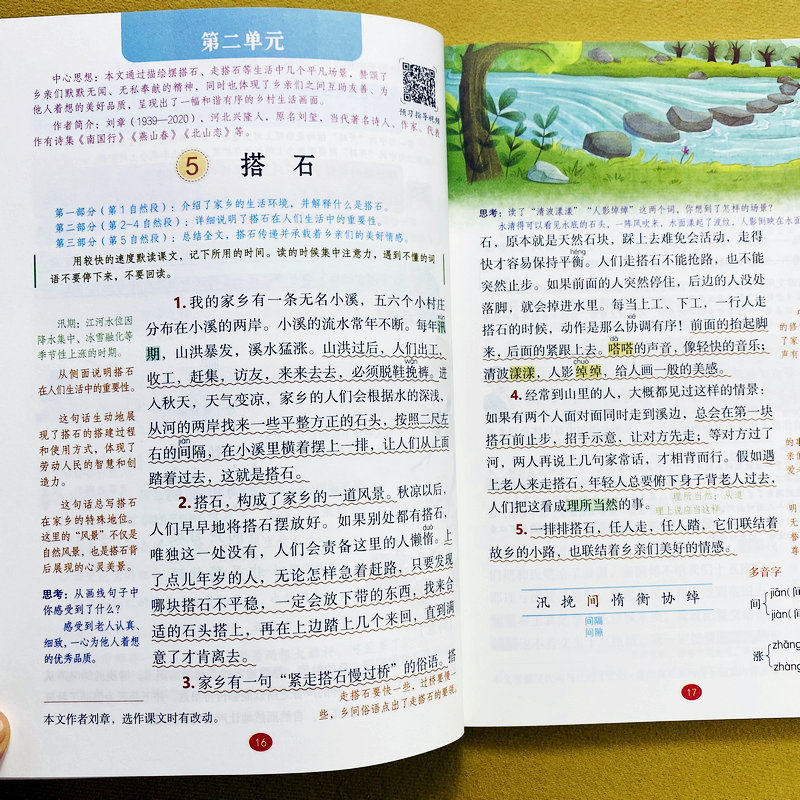 第二单元
中心思想：本文通过描绘摆搭石、走搭石等生活中几个平凡场景，赞颂了
乡亲们默默无闻、无私奉献的精神，同时也体现了乡亲们之间互助友善、为
他人着想的美好品质，呈现出了一幅和谐有序的乡村生活画面。
作者简介：刘章（1939—2020），河北兴隆人，原名刘玺，当代著名诗人、作家。代表
作有诗集《南国行》《燕山春》《北山恋》等。
预习指导视频
5 搭石
第一部分（第1自然段）：介绍了家乡的生活环境，并解释什么是搭石。
第二部分（第2-4自然段）：详细说明了搭石在人们生活中的重要性。
第三部分（第5自然段）：总结全文，搭石传递并承载着乡亲们的美好情感。
用较快的速度默读课文，记下所用的时间。读的时候集中注意力，遇到不懂的词
语不要停下来，不要回读。
汛期：江河水位因
降水集中、冰雪融化等
季节性上涨的时期。
从侧面说明搭石
在人们生活中的重要性。
这句话生动地展
现了搭石的搭建过程
和使用方式，体现了
劳动人民的智慧和创
造力。
这句话总写搭石
在家乡的特殊地位。
这里的“风景”不仅是
自然风景，也是搭石背
后展现的心灵美景。
思考：从画线句子中
你感受到了什么？
感受到老人认真、
细致，一心为他人着想
的优秀品质。
1.我的家乡有一条无名小溪，五六个小村庄
分布在小溪的两岸。小溪的流水常年不断。每年汛
xùn
期，山洪暴发，溪水猛涨。山洪过后，人们出工、
wǎn
收工，赶集，访友，来来去去，必须脱鞋挽裤。进
入秋天，天气变凉，家乡的人们会根据水的深浅，
从河的两岸找来一些平整方正的石头，按照二尺左
jiàn
右的间隔，在小溪里横着摆上一排，让人们从上面
踏着过去，这就是搭石。
2.搭石，构成了家乡的一道风景。秋凉以后，
人们早早地将搭石摆放好。如果别处都有搭石，
duò
唯独这一处没有，人们会责备这里的人懒惰。上
了点儿年岁的人，无论怎样急着赶路，只要发现
哪块搭石不平稳，一定会放下带的东西，找来合
适的石头搭上，再在上边踏上几个来回，直到满
意了才肯离去。
3.家乡有一句“紧走搭石慢过桥”的俗语。搭
走搭石要快一些，过桥要慢一
些，乡间俗语点出了走搭石的要领。
本文作者刘章，选作课文时有改动。
16
思考：读了“清波漾漾”“人影绰绰”这两个词，你想到了怎样的场景？
水清得可以看见水底的石头，一阵风吹来，水面漾起了波纹，人影倒映在水面
石，原本就是天然石块，踩上去难免会活动，走得
héng
快才容易保持平衡。人们走搭石不能抢路，也不能
突然止步。如果前面的人突然停住，后边的人没处
落脚，就会掉进水里。每当上工、下工，一行人走
xié
搭石的时候，动作是那么协调有序！前面的抬起脚
dā
来，后面的紧跟上去。嗒嗒的声音，像轻快的音乐；
chuò
清波漾漾，人影绰绰，给人画一般的美感。
4.经常到山里的人，大概都见过这样的情景：
如果有两个人面对面同时走到溪边，总会在第一块
搭石前止步，招手示意，让对方先走；等对方过了
河，两人再说上几句家常话，才相背而行。假如遇
上老人来走搭石，年轻人总要俯下身子背老人过去，
人们把这看成理所当然的事。
理所当然：从道
理上说应当这样。
5.一排排搭石，任人走，任人踏，它们联结着
故乡的小路，也联结着乡亲们美好的情感。
汛 挽 间 惰 衡 协 绰
间隔
间隙
多音字
间
jiān(
jiàn(
涨
zhǎng
zhàng
17